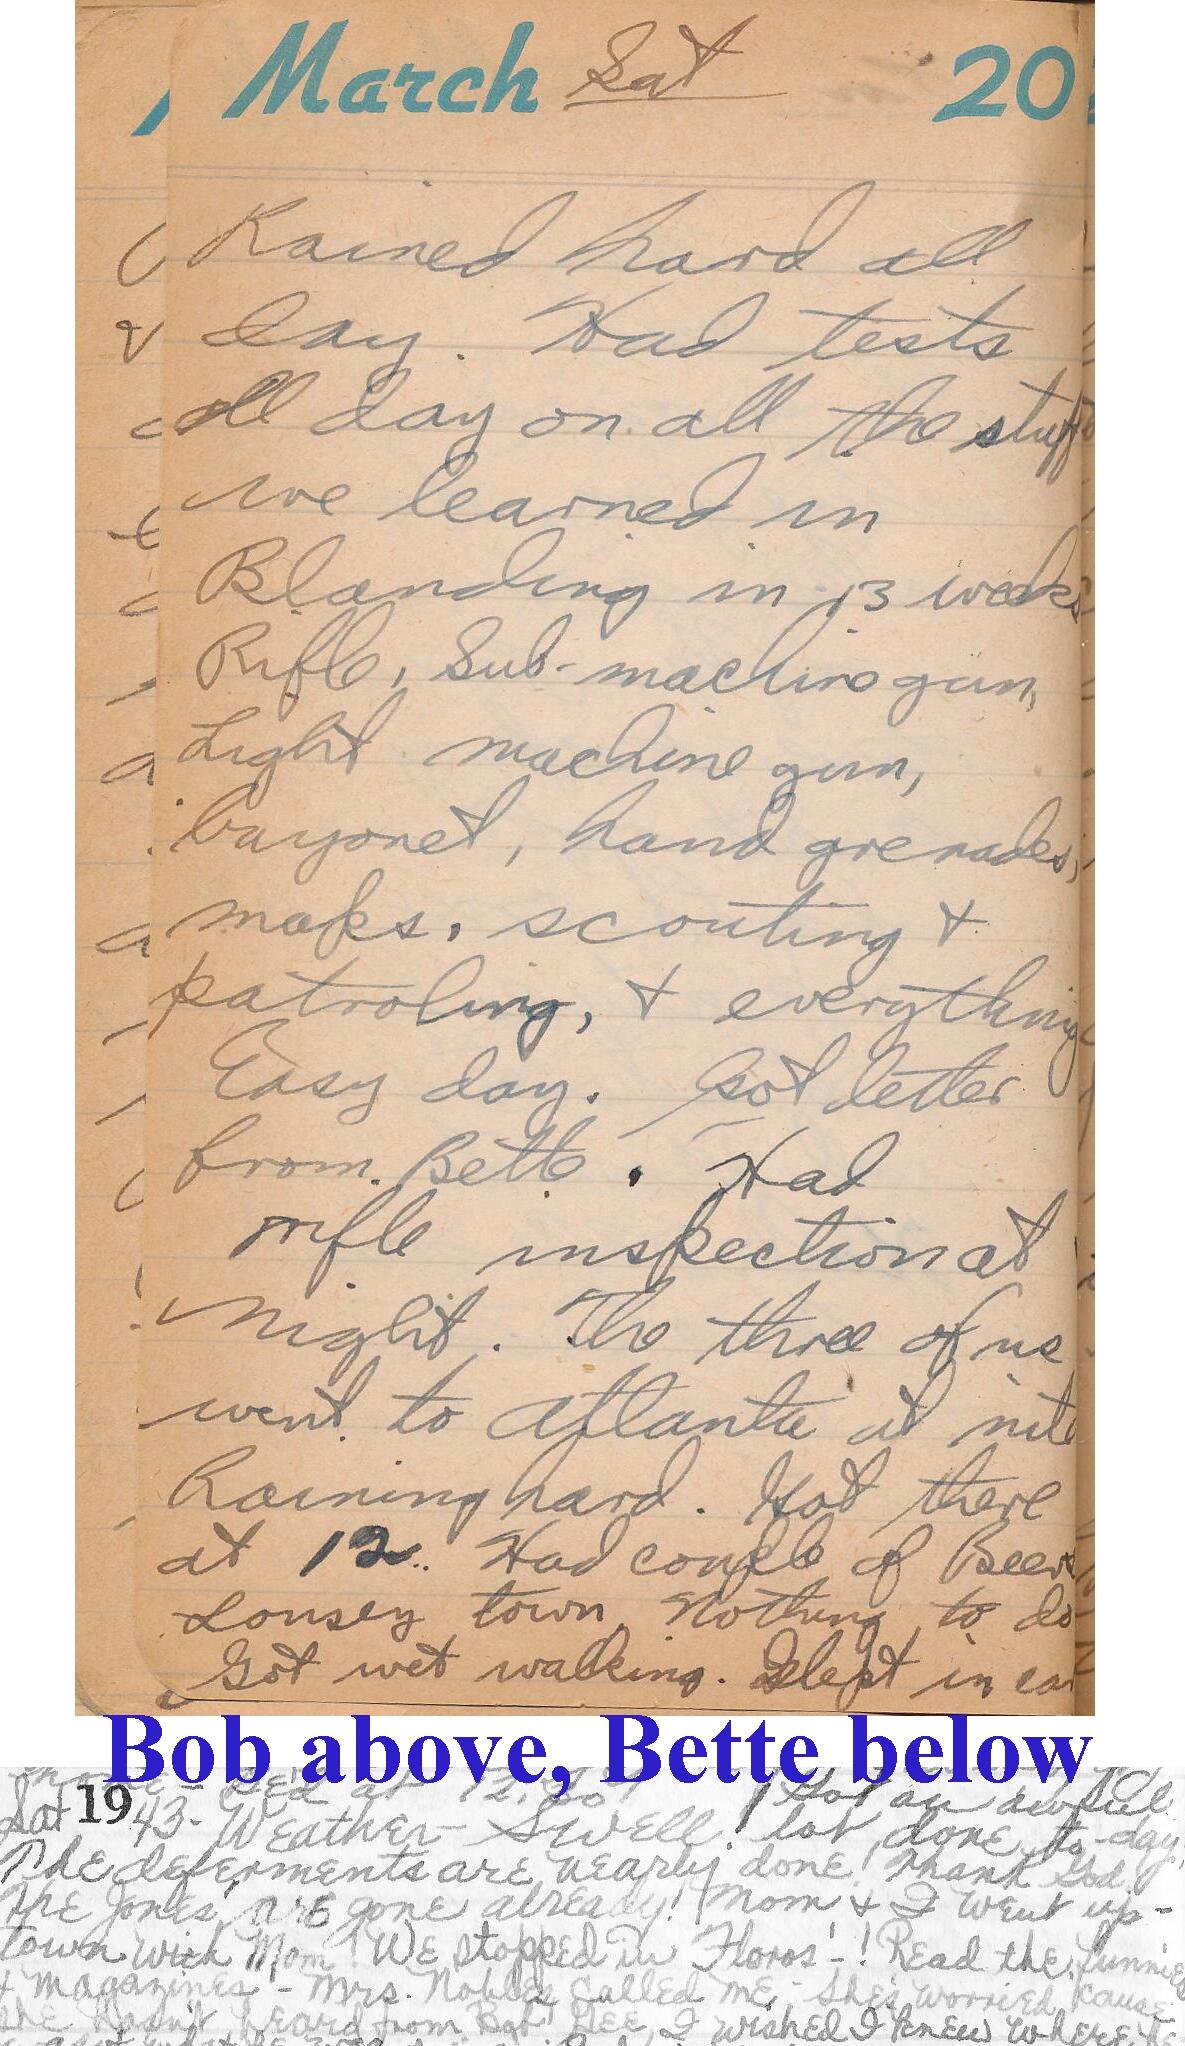 March Sat 20
Rained hard all
day. Had tests
all day on all the stuff
we learned in
Blanding in 13 weeks
Rifle, Sub-machine gun,
Light machine gun,
bayonet, hand grenades,
maps, scouting &
patroling, & everything
Easy day. Got letter
from Bette. Had
rifle inspection at
night. The three of us
went to Atlanta at nite
Raining hard. Got there
at 12. Had couple of Beers
Lousey town. Nothing to do
Got wet walking. Slept in car
Bob above, Bette below
Bed at 12:30 ! Got an awful
Sat 19 43 - Weather - Swell! lot done to-day!
The deferments are nearly done! Thank God
The Jones' are gone already! Mom & I went up-
town with Mom! We stopped in Floros'-! Read the funnies
& magazines - Mrs. Nobles called me - She's worried cause
she hasn't heard from Bob! Gee, I wished I knew where he